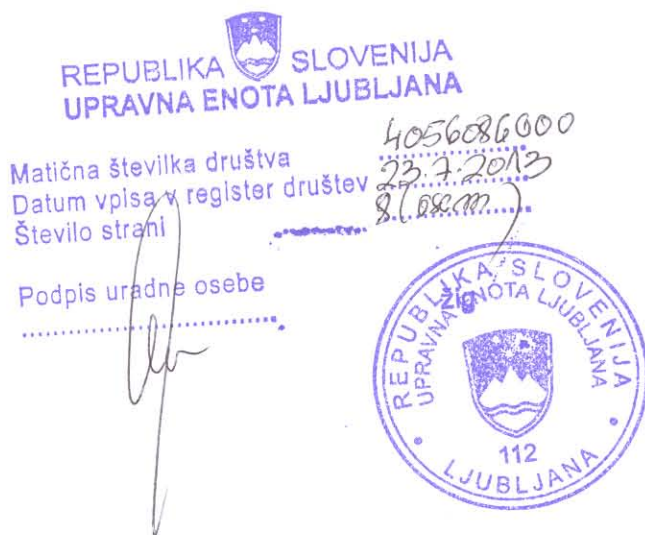 REPUBLIKA SLOVENIJA
UPRAVNA ENOTA LJUBLJANA
Matična številka društva 4056086000
Datum vpisa v register društev 23.7.2013
Število strani 8 (osem)
Podpis uradne osebe
žig
REPUBLIKA SLOVENIJA
UPRAVNA ENOTA LJUBLJANA
112
LJUBLJANA